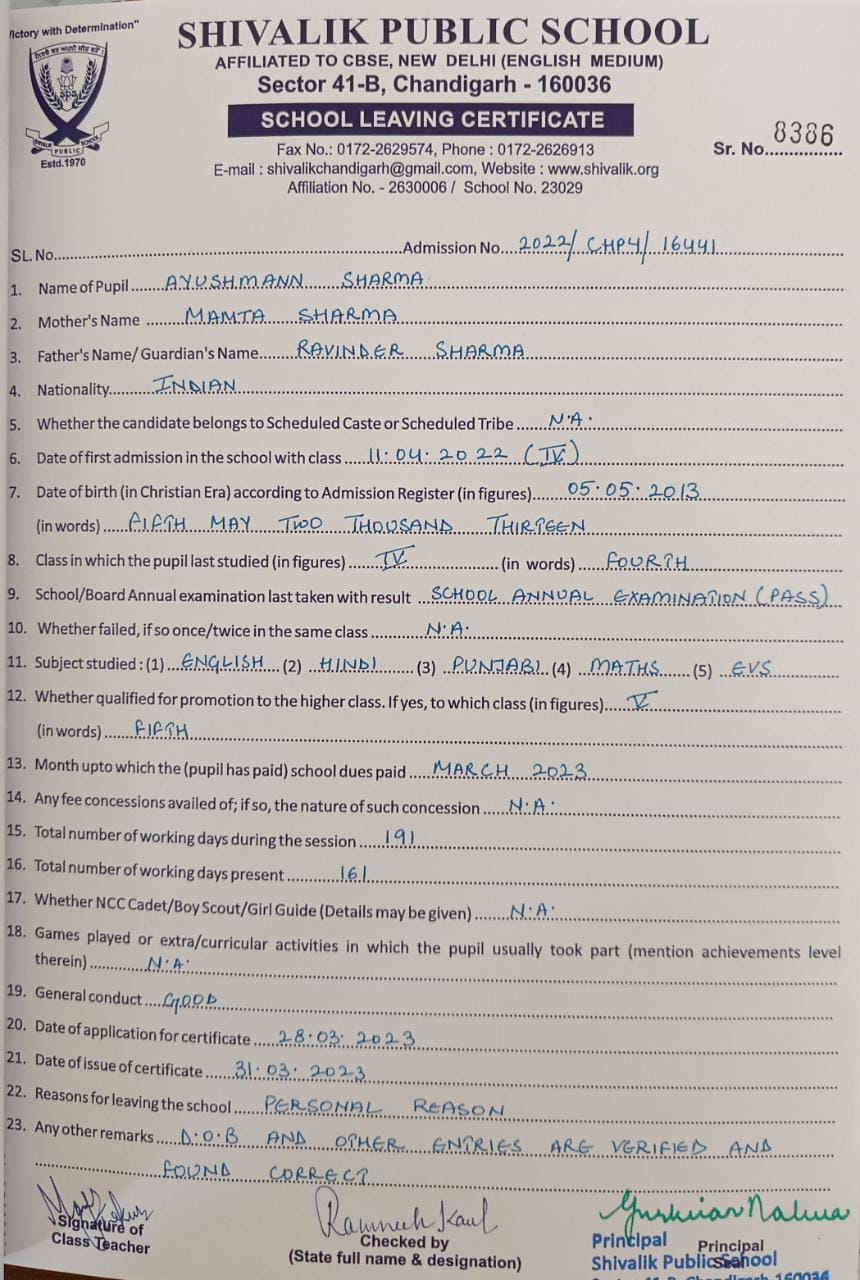 ictory with Determination"
SHIVALIK PUBLIC SCHOOL
AFFILIATED TO CBSE, NEW DELHI (ENGLISH MEDIUM)
Sector 41-B, Chandigarh - 160036
SCHOOL LEAVING CERTIFICATE
Fax No.: 0172-2629574, Phone : 0172-2626913
E-mail : shivalikchandigarh@gmail.com, Website : www.shivalik.org
Affiliation No. - 2630006 / School No. 23029
Sr. No. 8386
SPS
SHIVALIK PUBLIC SCHOOL
Estd.1970
SL. No. Admission No. 2022/ CHP4/ 16441
1. Name of Pupil AYUSHMANN SHARMA
2. Mother's Name MAMTA SHARMA
3. Father's Name/ Guardian's Name RAVINDER SHARMA
4. Nationality INDIAN
5. Whether the candidate belongs to Scheduled Caste or Scheduled Tribe N.A.
6. Date of first admission in the school with class 11.04.2022 (IV)
7. Date of birth (in Christian Era) according to Admission Register (in figures) 05.05.2013
(in words) FIFTH MAY TWO THOUSAND THIRTEEN
8. Class in which the pupil last studied (in figures) IV (in words) FOURTH
9. School/Board Annual examination last taken with result SCHOOL ANNUAL EXAMINATION (PASS)
10. Whether failed, if so once/twice in the same class N.A.
11. Subject studied : (1) ENGLISH (2) HINDI (3) PUNJABI (4) MATHS (5) EVS
12. Whether qualified for promotion to the higher class. If yes, to which class (in figures) V
(in words) FIFTH
13. Month upto which the (pupil has paid) school dues paid MARCH 2023
14. Any fee concessions availed of; if so, the nature of such concession N.A.
15. Total number of working days during the session 191
16. Total number of working days present 161
17. Whether NCC Cadet/Boy Scout/Girl Guide (Details may be given) N.A.
18. Games played or extra/curricular activities in which the pupil usually took part (mention achievements level
therein) N.A.
19. General conduct GOOD
20. Date of application for certificate 28.03.2023
21. Date of issue of certificate 31.03.2023
22. Reasons for leaving the school PERSONAL REASON
23. Any other remarks D.O.B AND OTHER ENTRIES ARE VERIFIED AND
FOUND CORRECT
Signature of
Class Teacher
Ramneek Kaul
Checked by
(State full name & designation)
Gursimran Nalwa
Principal
Principal
Shivalik Public School